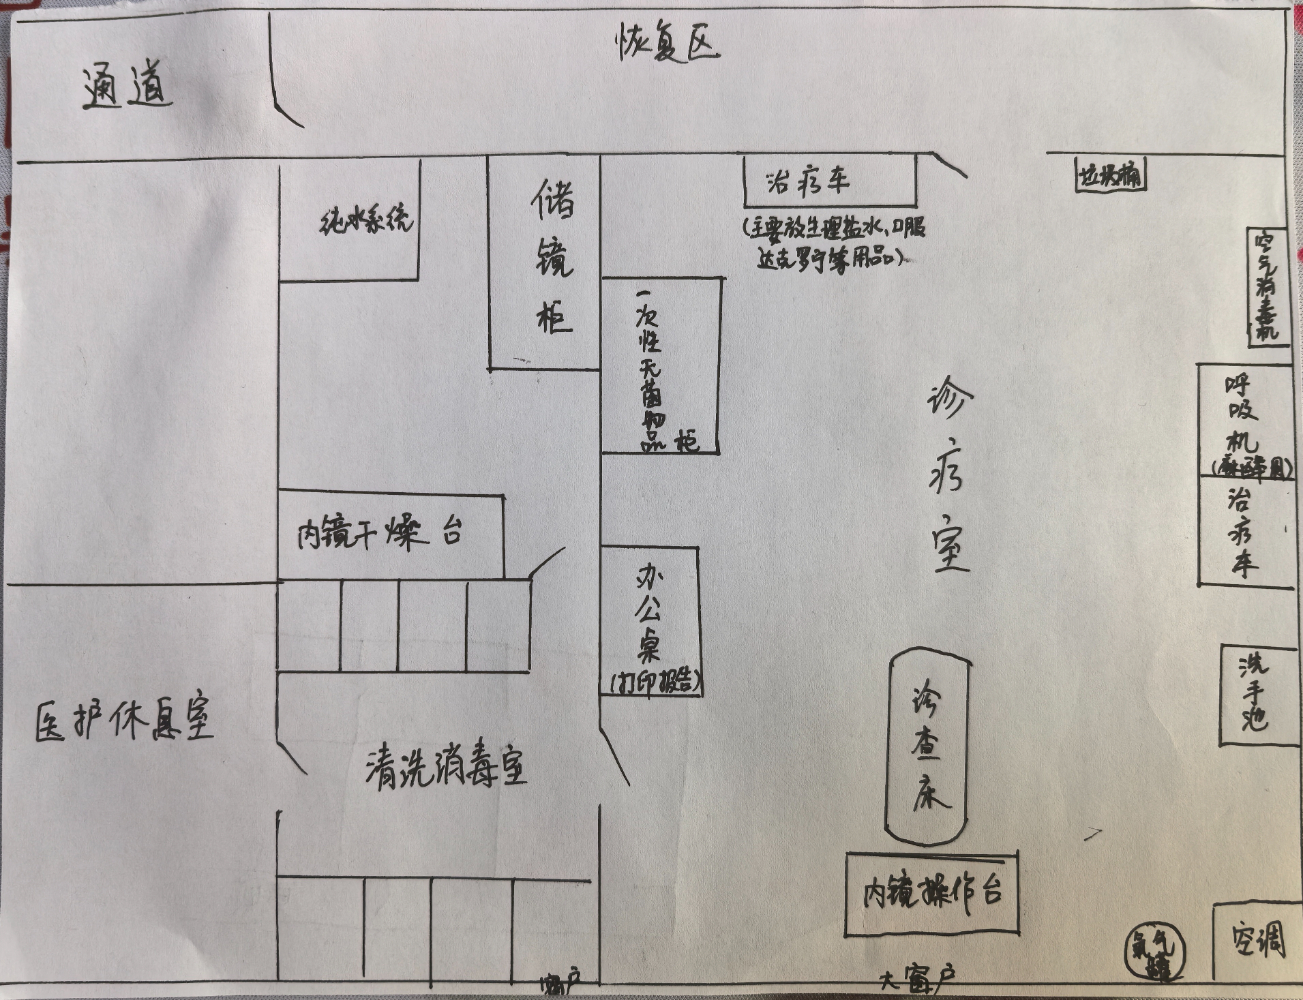 恢复区
通道
纯水系统
储镜柜
治疗车
(主要放生理盐水、口服
达克罗宁等用品)
垃圾桶
空气消毒机
一次性无菌物品柜
呼吸机
(麻醉用)
治疗车
诊疗室
内镜干燥台
办公桌
(打印报告)
洗手池
医护休息室
清洗消毒室
诊查床
内镜操作台
空调
窗户
大窗户